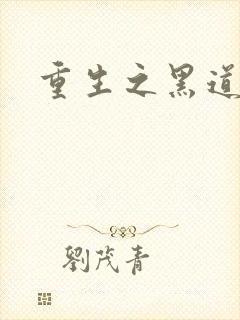 重生之黑道
劉茂青